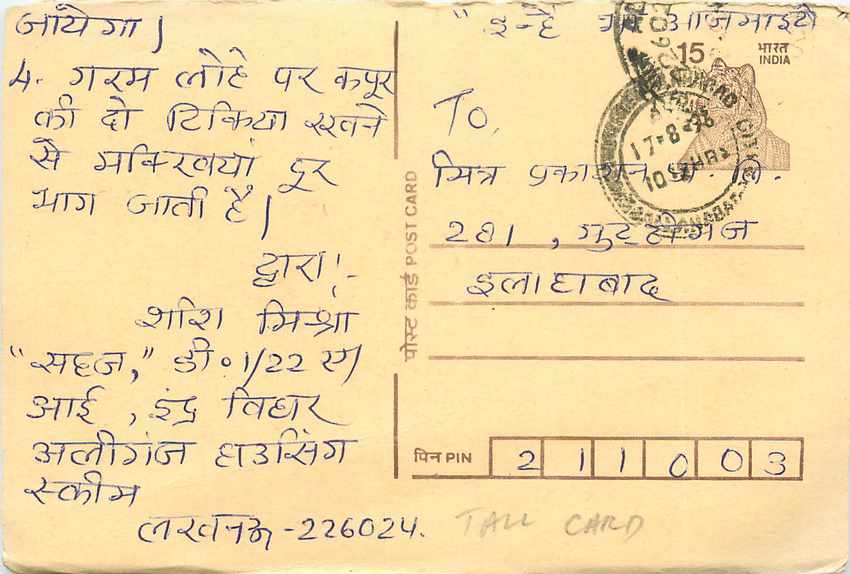 जायेगा।
4. गरम लोहे पर कपूर
की दो टिकिया रखने
से मक्खियां दूर
भाग जाती है।
द्वारा:-
शशि मिश्रा
"सहज," डी०1/22 ए
आई, इंद्र विहार
अलीगंज हाउसिंग
स्कीम
लखनऊ-226024.
पोस्ट कार्ड POST CARD
"इन्हें भी आजमाइये"
15 भारत
INDIA
17-8
To,
मित्र प्रकाशन प्रा. लि.
281, मुट्ठीगंज
इलाहाबाद
पिन PIN 211003
TALL CARD